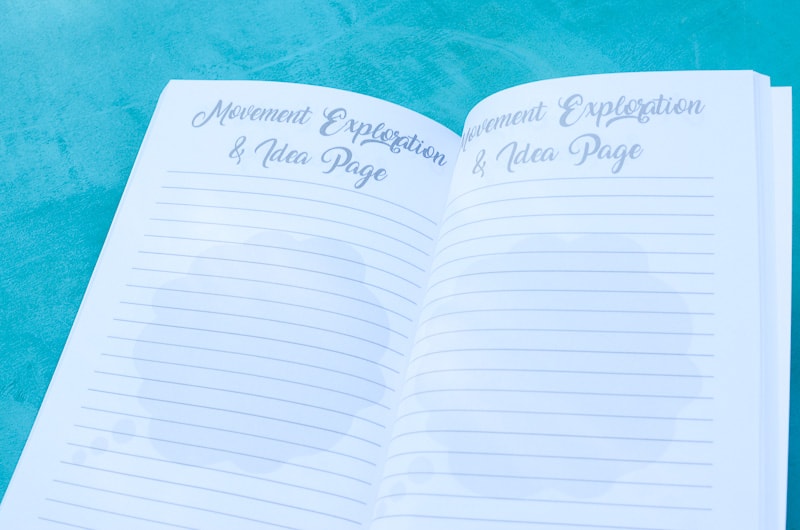 Movement Exploration
& Idea Page
Movement Exploration
& Idea Page